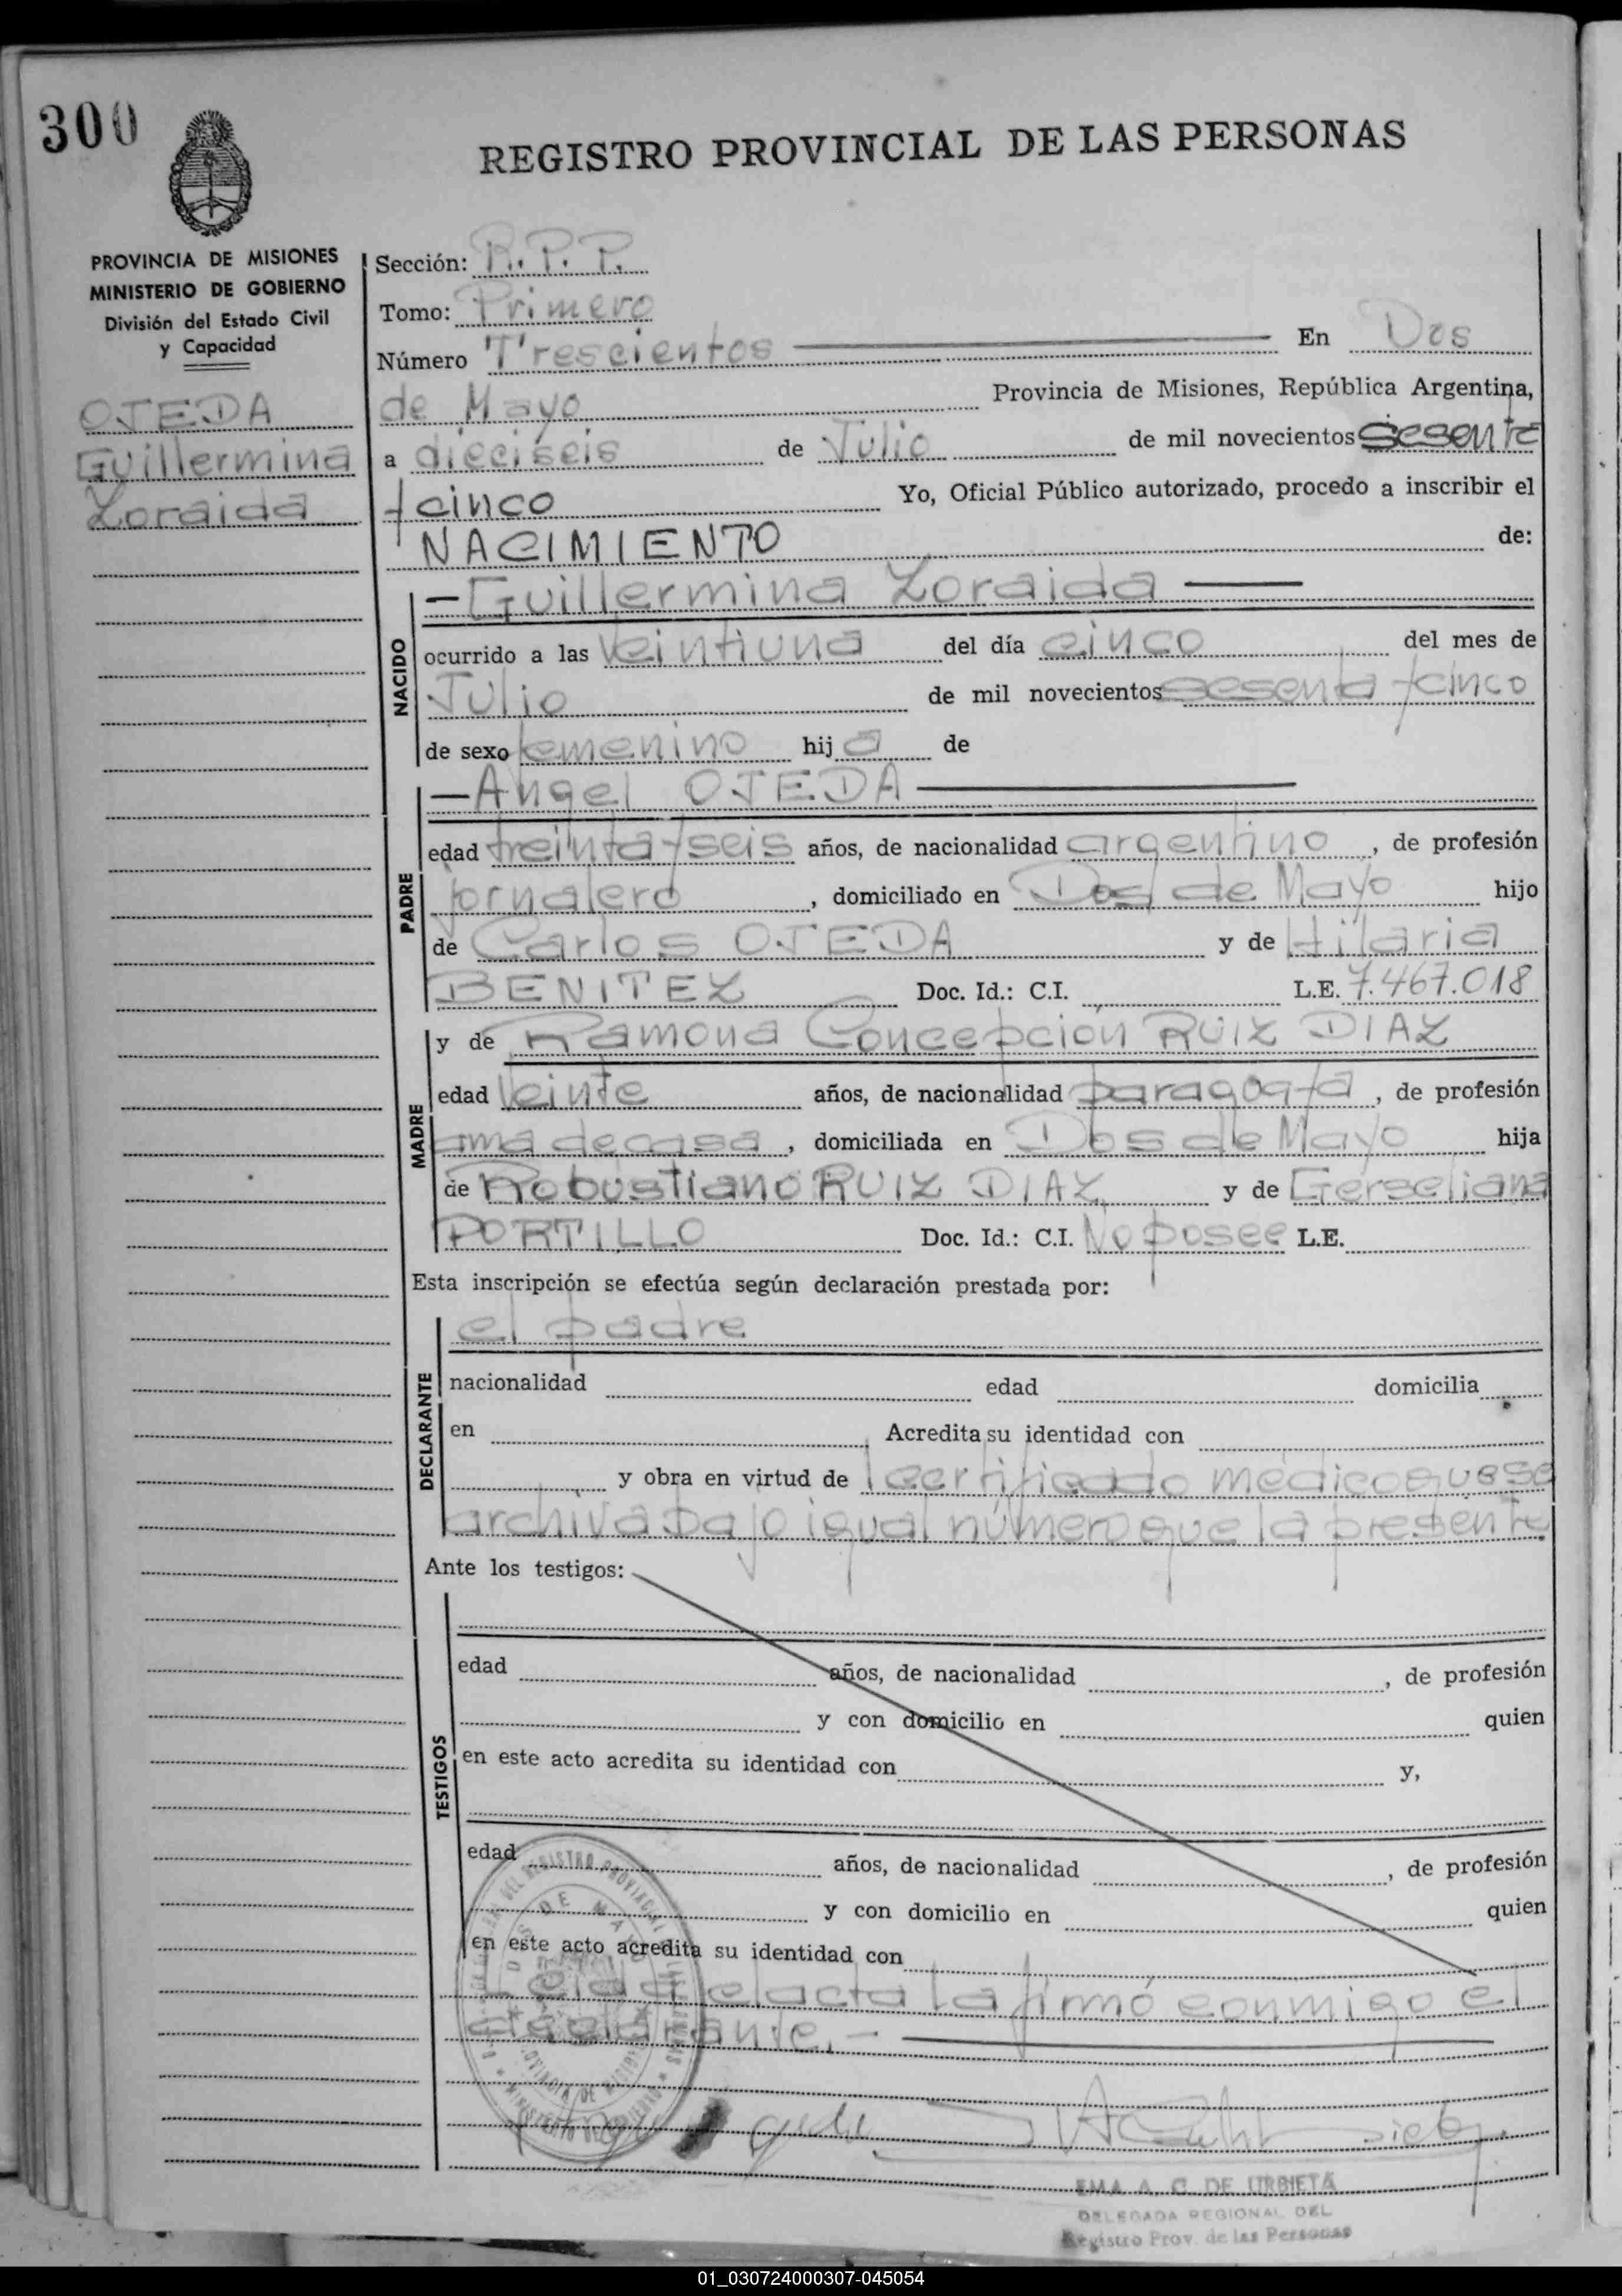 300
REGISTRO PROVINCIAL DE LAS PERSONAS
PROVINCIA DE MISIONES
MINISTERIO DE GOBIERNO
División del Estado Civil
y Capacidad
OJEDA
Guillermina
Zoraida
Sección: R.P.P.
Tomo: Primero
Número Trescientos En Dos
de Mayo Provincia de Misiones, República Argentina,
a dieciséis de Julio de mil novecientos sesenta
y cinco Yo, Oficial Público autorizado, procedo a inscribir el
NACIMIENTO de:
NACIDO
— Guillermina Zoraida —
ocurrido a las veintiuna del día cinco del mes de
Julio de mil novecientos sesenta y cinco
de sexo femenino hija de
PADRE
— Angel OJEDA —
edad treinta y seis años, de nacionalidad argentino, de profesión
jornalero, domiciliado en Dos de Mayo hijo
de Carlos OJEDA y de Hilaria
BENITEZ Doc. Id.: C.I. L.E. 7.467.018
MADRE
y de Ramona Concepción RUIZ DIAZ
edad veinte años, de nacionalidad paraguaya, de profesión
ama de casa, domiciliada en Dos de Mayo hija
de Robustiano RUIZ DIAZ y de Gerseliana
PORTILLO Doc. Id.: C.I. No posee L.E.
Esta inscripción se efectúa según declaración prestada por:
DECLARANTE
el padre
nacionalidad edad domicilia
en Acredita su identidad con
y obra en virtud de certificado médico que se
archiva bajo igual número que la presente
Ante los testigos:
TESTIGOS
edad años, de nacionalidad , de profesión
y con domicilio en quien
en este acto acredita su identidad con y,
edad años, de nacionalidad , de profesión
y con domicilio en quien
en este acto acredita su identidad con
Leída el acta la firmó conmigo el
declarante.—
DOS DE MAYO
EMA A. C. DE URBIETA
DELEGADA REGIONAL DEL
Registro Prov. de las Personas
01_030724000307-045054